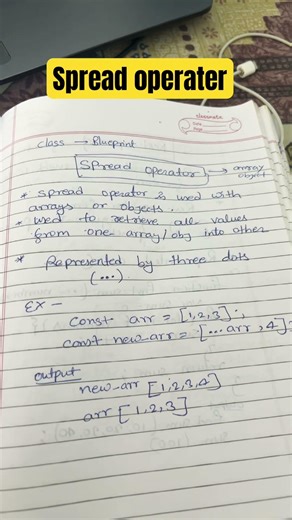 Spread operater
classmate
Date
Page
class → Blueprint
Spread operator → array
object
* Spread operator is used with
arrays or objects.
* Used to retrieve all values
from one array/obj into other
* Represented by three dots
(...)
Ex -
const arr = [1,2,3];
const new-arr = [...arr, 4]
output
new-arr [1,2,3,4]
arr [1,2,3]